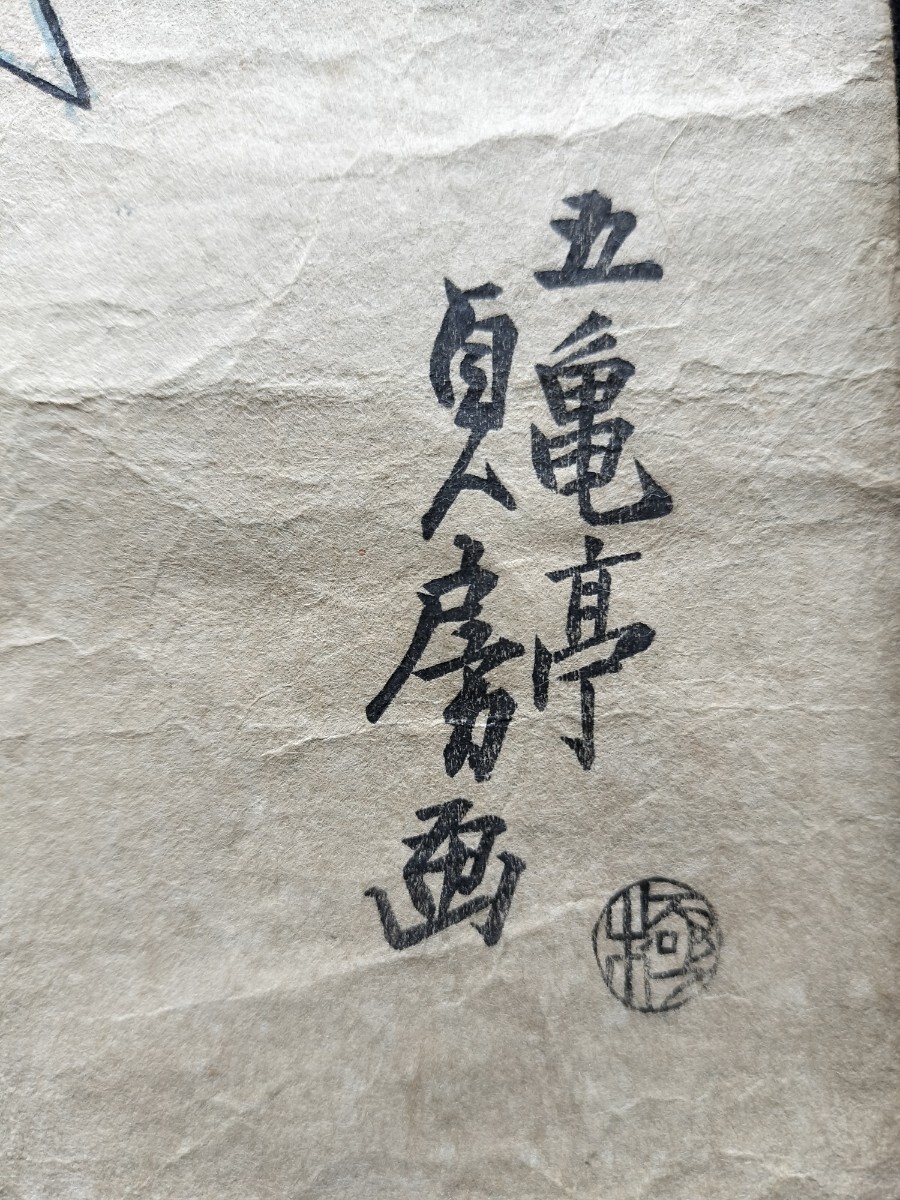 五亀亭
貞房画
極